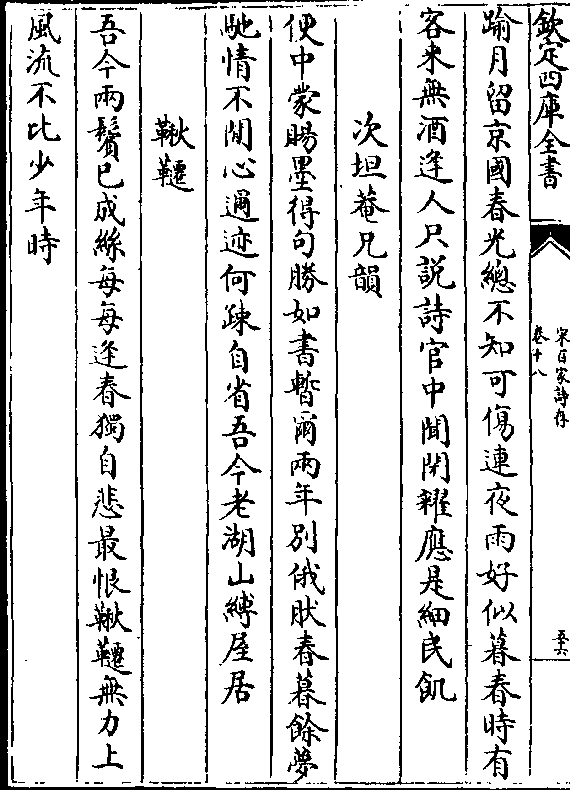 欽定四庫全書
宋百家詩存
卷十八
五六
踰月留京國春光總不知可傷連夜雨好似暮春時有
客來無酒逢人只說詩官中聞閉糴應是細民飢
次坦菴兄韻
便中蒙賜墨得句勝如書暫爾兩年別俄肰春暮餘夢
馳情不閒心邇迹何疎自省吾今老湖山縛屋居
鞦韆
吾今兩鬢已成絲每每逢春獨自悲最恨鞦韆無力上
風流不比少年時